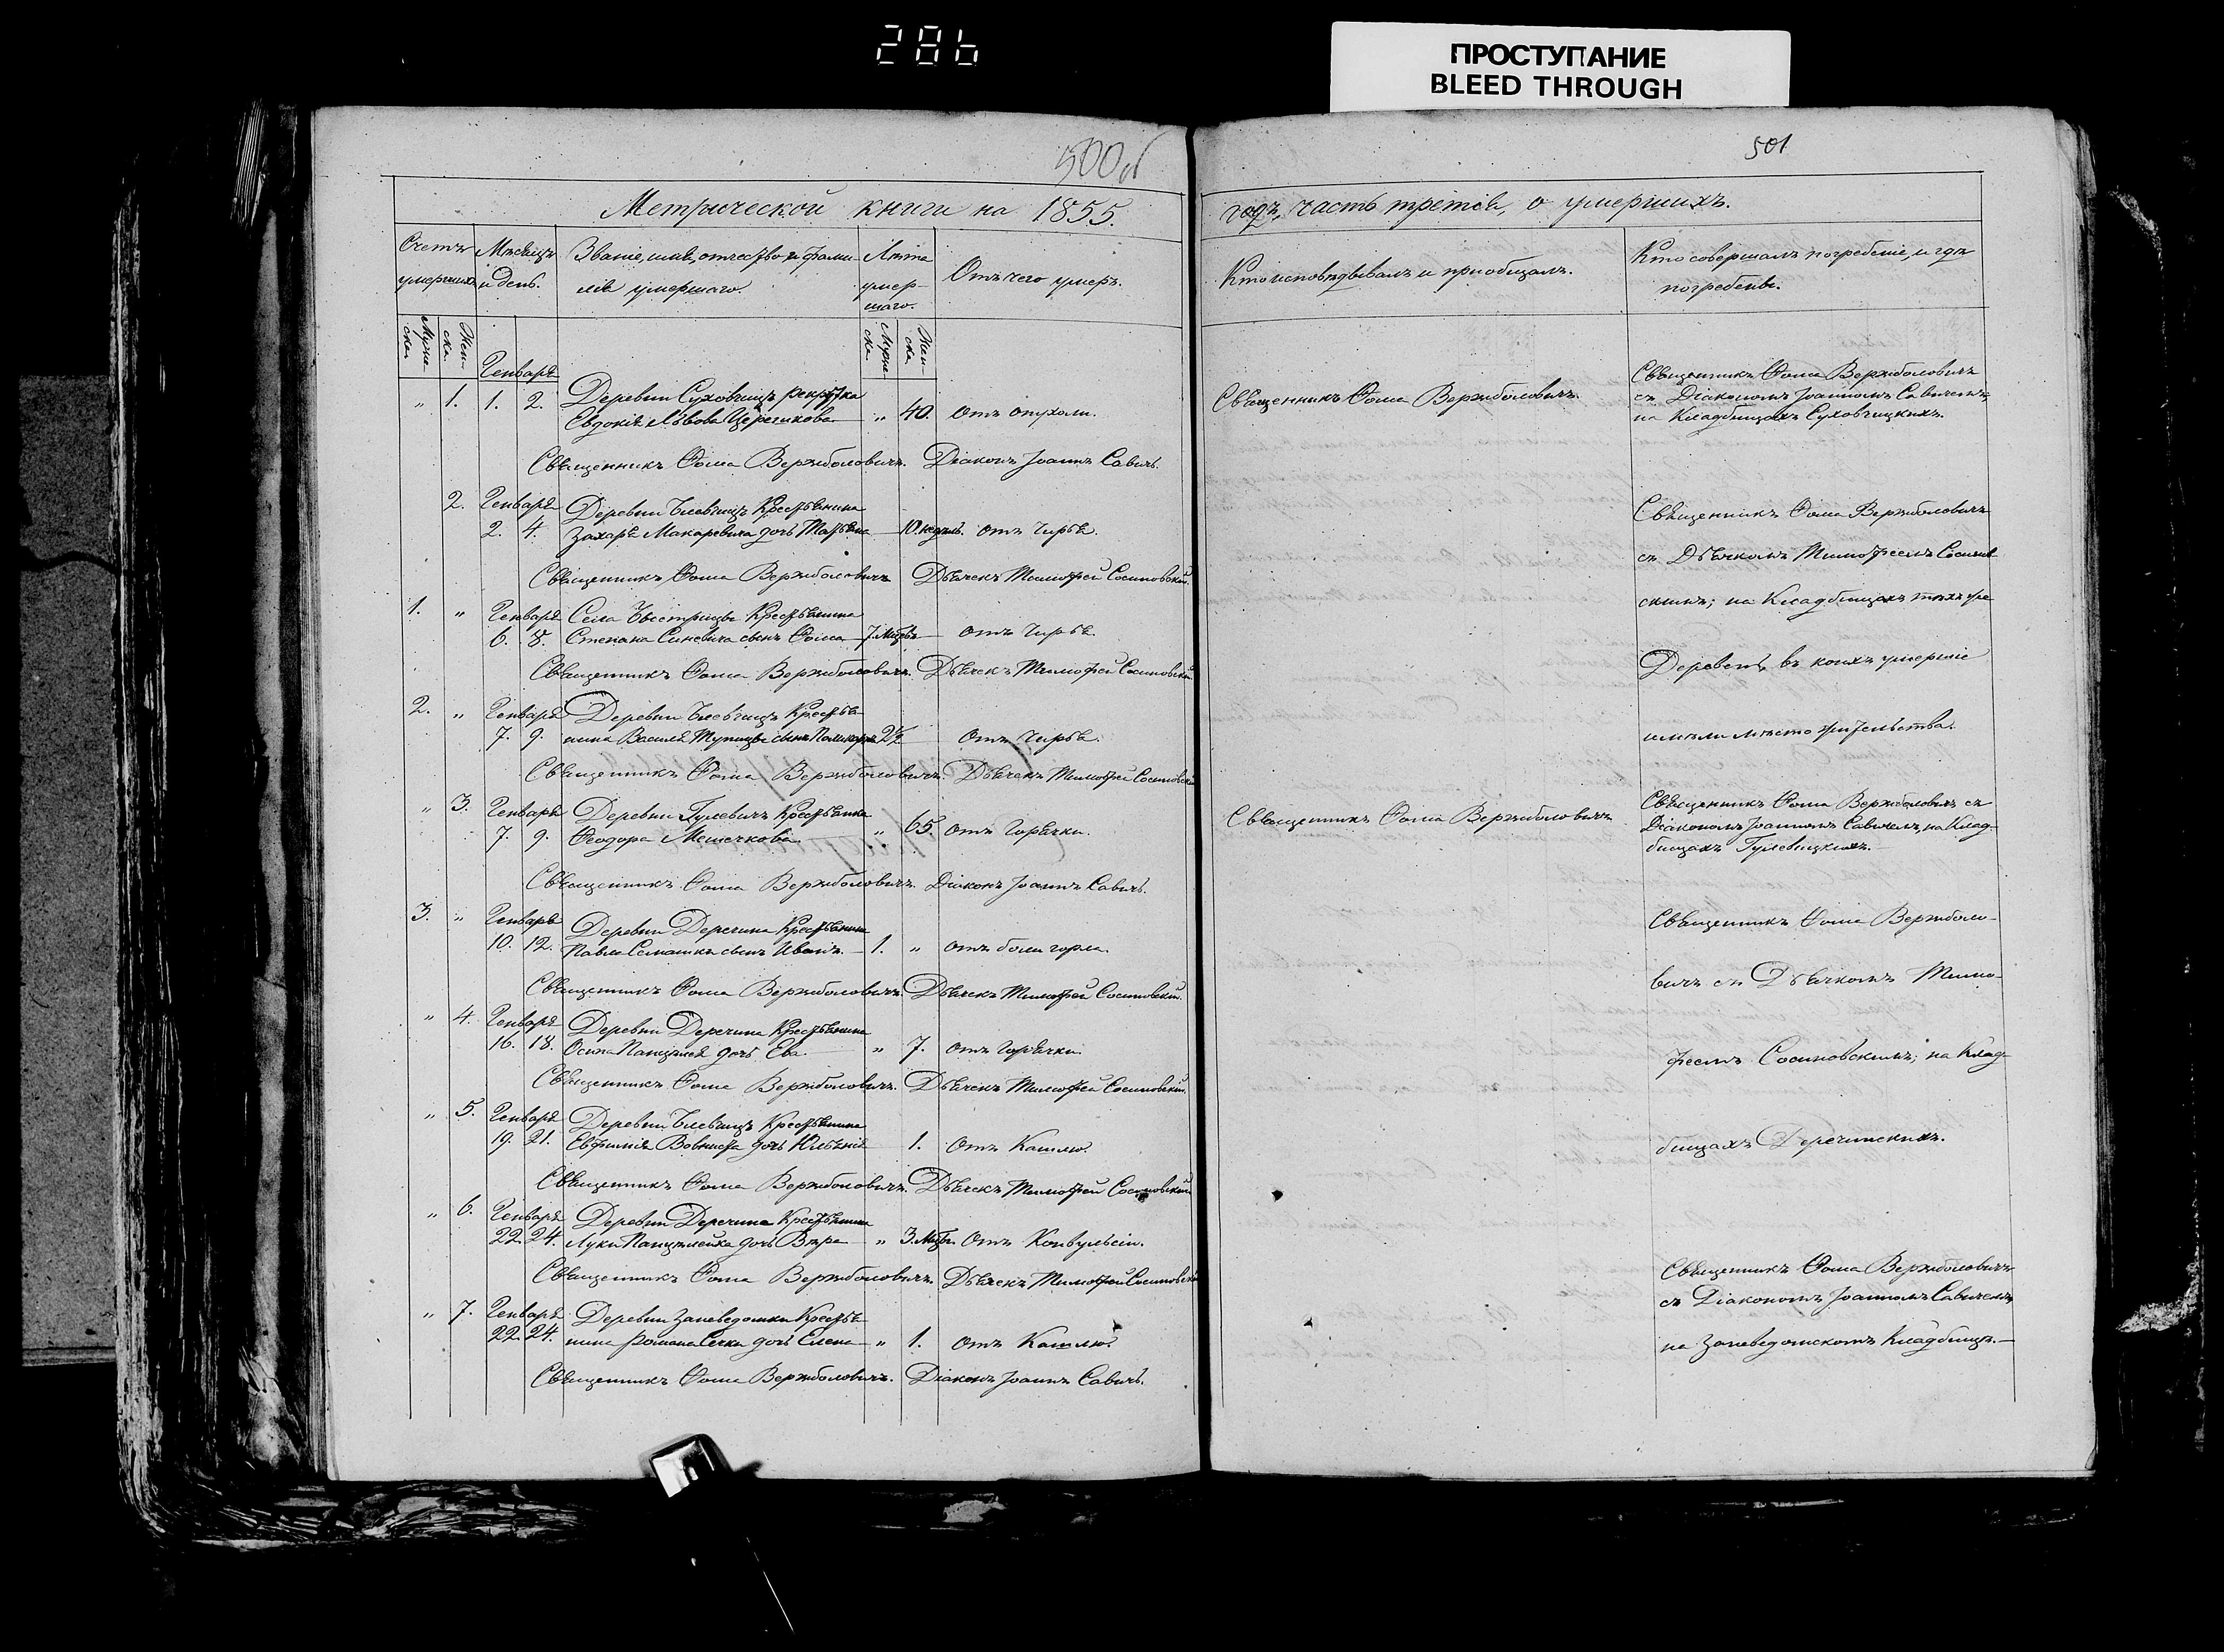 286
ПРОСТУПАНИЕ
BLEED THROUGH
500об
501
Метрической книги на 1855.
годъ, часть третія, о умершихъ.
Счетъ умершихъ
Мѣсяцъ и день.
Званіе, имя, отчество и фами-
лія умершаго.
Лѣта умер-
шаго.
Отъ чего умеръ.
Кто исповѣдывалъ и пріобщалъ.
Кто совершалъ погребеніе, и гдѣ
погребены.
Муже-
ска
Жен-
ска.
Генваря
Муже-
ска
Жен-
ска.
„ 1. 1. 2. Деревни Суховчицъ рекрутка
Евдокія Львова „ 40. отъ опухоли.
Священникъ Ѳома Вержболовичъ.
Священникъ Ѳома Вержболовичъ
съ Діакономъ Іоанномъ Савичемъ,
на Кладбищахъ Суховчицкихъ.
Священникъ Ѳома Вержболовичъ. Діаконъ Іоаннъ Савичъ.
2. Генваря Деревни Блевчицъ Крестьянина
2. 4. Захарія Макаревича дочь Татьяна 10. недѣль. отъ Чирья.
Священникъ Ѳома Вержболовичъ Дьячекъ Тимоѳей Сосиновскій.
Священникъ Ѳома Вержболовичъ
съ Дьячкомъ Тимоѳеемъ Сосинов
скимъ; на Кладбищахъ тѣхъ же
Деревень, въ коихъ умершіе
имѣли мѣсто жительства.
1. „ Генваря Села Быстрицы Крестьянина
6. 8. Степана Синевича сынъ Ѳома 7. Мѣсяц отъ Чирья.
Священникъ Ѳома Вержболовичъ. Дьячекъ Тимоѳей Сосиновскій.
2. „ Генваря Деревни Блевчицъ Крестья-
7. 9. нина Василія Тупицы сынъ Поликарпъ 2½ Отъ Чирья.
Священникъ Ѳома Вержболовичъ. Дьячекъ Тимоѳей Сосиновскій
„ 3. Генваря Деревни Гулевичъ Крестьянка
7. 9. Ѳеодора Мешечкова „ 65. отъ Горячки.
Священникъ Ѳома Вержболовичъ
Священникъ Ѳома Вержболовичъ съ
Діакономъ Іоанномъ Савичемъ, на Клад-
бищахъ Гулевицкихъ.
Священникъ Ѳома Вержболовичъ. Діаконъ Іоаннъ Савичъ.
3. „ Генваря Деревни Деречина Крестьянина
10. 12. Павла Семашки сынъ Иванъ. 1. „ отъ боли горла.
Священникъ Ѳома Вержболовичъ. Дьячекъ Тимоѳей Сосиновскій.
Священникъ Ѳома Вержболо-
вичъ съ Дьячкомъ Тимо-
ѳеемъ Сосиновскимъ; на Клад-
бищахъ Деречинскихъ.
„ 4. Генваря Деревни Деречина Крестьянина
16. 18. Осипа дочь Ева. „ 7. отъ Горячки.
Священникъ Ѳома Вержболовичъ. Дьячекъ Тимоѳей Сосиновскій.
„ 5. Генваря Деревни Блевчицъ Крестьянина
19. 21. Евфимія дочь Юльянія 1. Отъ Кашлю.
Священникъ Ѳома Вержболовичъ. Дьячекъ Тимоѳей Сосиновскій
„ 6. Генваря Деревни Деречина Крестьянина
22. 24. Луки дочь Вѣра „ 3. Мѣсяц Отъ Конвульсіи.
Священникъ Ѳома Вержболовичъ. Дьячекъ Тимоѳей Сосиновскій
„ 7. Генваря Деревни Заневедомки Крестья-
22. 24. нина Романа Сечка дочь Елена „ 1. отъ Кашлю.
Священникъ Ѳома Вержболовичъ. Діаконъ Іоаннъ Савичъ.
Священникъ Ѳома Вержболовичъ
съ Діакономъ Іоанномъ Савичемъ
на Заневедомскомъ Кладбищѣ.